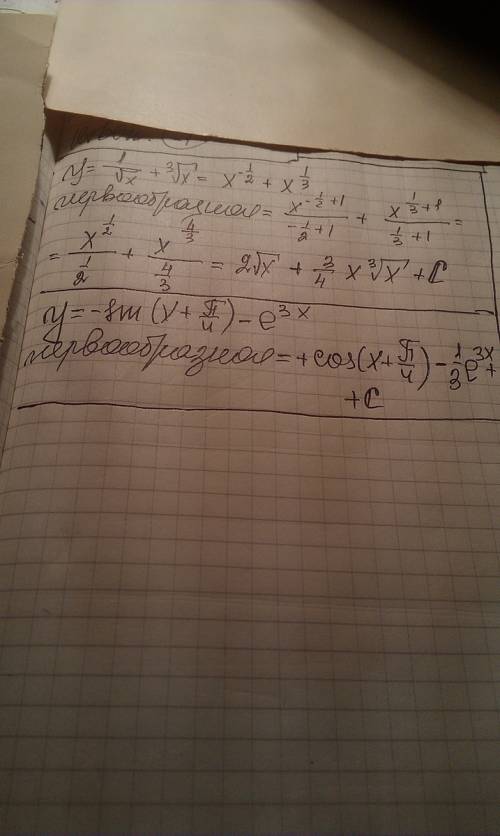 y = 1/√x + ∛x = x^(-1/2) + x^(1/3)
первообразная = x^(-1/2+1)/(-1/2+1) + x^(1/3+1)/(1/3+1) =
= x^(1/2)/(1/2) + x^(4/3)/(4/3) = 2√x + 3/4 x ∛x + C
y = -sin(x + π/4) - e^(3x)
первообразная = +cos(x + π/4) - 1/3 e^(3x) +
+ C